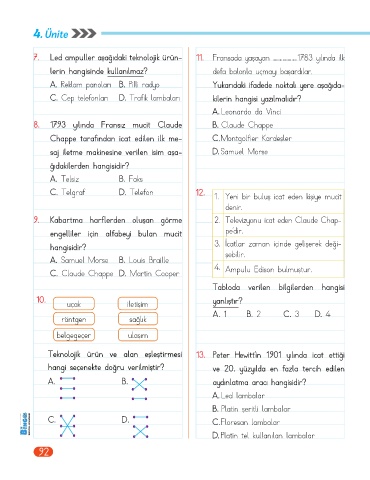 4. Ünite
7. Led ampuller aşağıdaki teknolojik ürün-
lerin hangisinde kullanılmaz?
A. Reklam panoları B. Pilli radyo
C. Cep telefonları D. Trafik lambaları
8. 1793 yılında Fransız mucit Claude
Chappe tarafından icat edilen ilk me-
saj iletme makinesine verilen isim aşa-
ğıdakilerden hangisidir?
A. Telsiz B. Faks
C. Telgraf D. Telefon
9. Kabartma harflerden oluşan görme
engelliler için alfabeyi bulan mucit
hangisidir?
A. Samuel Morse B. Louis Braille
C. Claude Chappe D. Martin Cooper
10.
uçak iletişim
röntgen sağlık
belgegeçer ulaşım
Teknolojik ürün ve alan eşleştirmesi
hangi seçenekte doğru verilmiştir?
A. B.
C. D.
11. Fransada yaşayan ............... 1783 yılında ilk
defa balonla uçmayı başardılar.
Yukarıdaki ifadede noktalı yere aşağıda-
kilerin hangisi yazılmalıdır?
A. Leonardo da Vinci
B. Claude Chappe
C. Montgolfier Kardeşler
D. Samuel Morse
12.
1. Yeni bir buluş icat eden kişiye mucit
denir.
2. Televizyonu icat eden Claude Chap-
pe'dir.
3. İcatlar zaman içinde gelişerek deği-
şebilir.
4. Ampulü Edison bulmuştur.
Tabloda verilen bilgilerden hangisi
yanlıştır?
A. 1 B. 2 C. 3 D. 4
13. Peter Hewitt'in 1901 yılında icat ettiği
ve 20. yüzyılda en fazla tercih edilen
aydınlatma aracı hangisidir?
A. Led lambalar
B. Platin şeritli lambalar
C. Floresan lambalar
D. Platin tel kullanılan lambalar
BİNGO
92